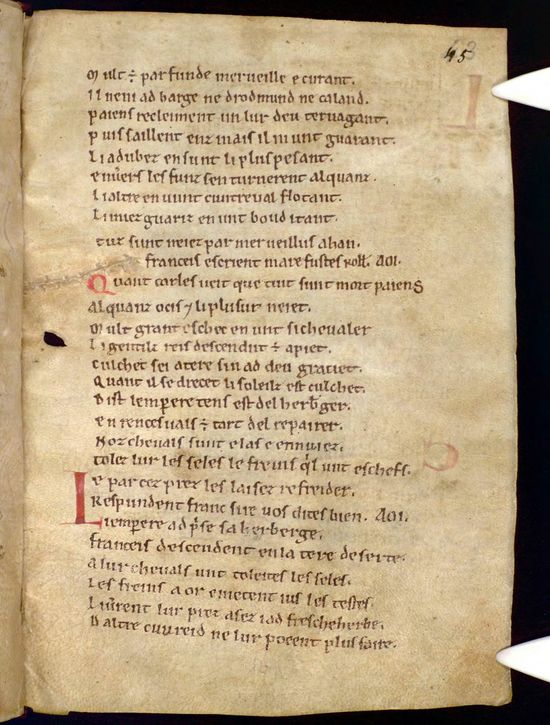 45
Mult ÷ parfunde merveille e curant.
Il nen i ad barge ne drodmund ne caland.
paiens recleiment un lur deu tervagant.
puis saillent enz mais il ni unt guarant.
Li adubez en sunt li plus pesant.
envers les funz sen turnerent alquanz.
Li altre en vunt cuntreval flotant.
Li miez guariz en unt boud itant.
tuz sunt neiez par merveillus ahan.
franceis escrient mare fustes Roll. AOI.
Quant carles veit que tuit sunt mort paiens
Alquanz ocis ⁊ li plusur neiet.
Mult grant eschec en unt si chevaler
Li gentilz reis descendut ÷ a piet.
culchet sei a tere sin ad deu graciet.
Quant il se drecet li soleilz est culchet.
Dist lempere tens est del herbger.
en rencesvals ÷ tart del repairer.
Noz chevals sunt e las e ennuiez.
tolez lur les seles le freins ql unt es chefs.
e par cez prez les laisez refreider.
Respundent franc sire vos dites bien. AOI.
Li emperere ad pse sa herberge.
franceis descendent en la tere deserte.
A lur chevals unt toleites les seles.
Les freins a or e metent ius les testes.
Livrent lur prez asez i ad fresche herbe.
D altre cunreid ne lur poeent plus faire.